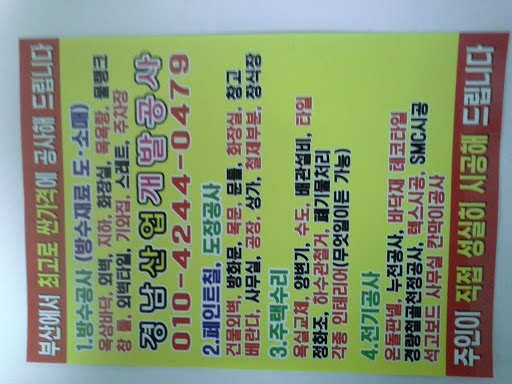 부산에서 최고로 싼가격에 공사해 드립니다
1.방수공사 (방수재료 도·소매)
옥상바닥, 외벽, 지하, 화장실, 목욕탕, 물탱크
창 틀, 외벽타일, 기와집, 스레트, 주차장
경남산업개발공사
010-4244-0479
2.페인트칠, 도장공사
건물외벽, 방화문, 목문, 문틀, 화장실, 창고
베란다, 사무실, 공장, 상가, 철재부분, 장식장
3.주택수리
욕실교체, 양변기, 수도, 배관설비, 타일
정화조, 하수관철거, 폐기물처리
각종 인테리어(무엇일이든 가능)
4.전기공사
온돌판넬, 누전공사, 바닥재 데코타일
경량철골천정공사, 텍스시공, SMC시공
석고보드 사무실 칸막이공사
주인이 직접 성실히 시공해 드립니다